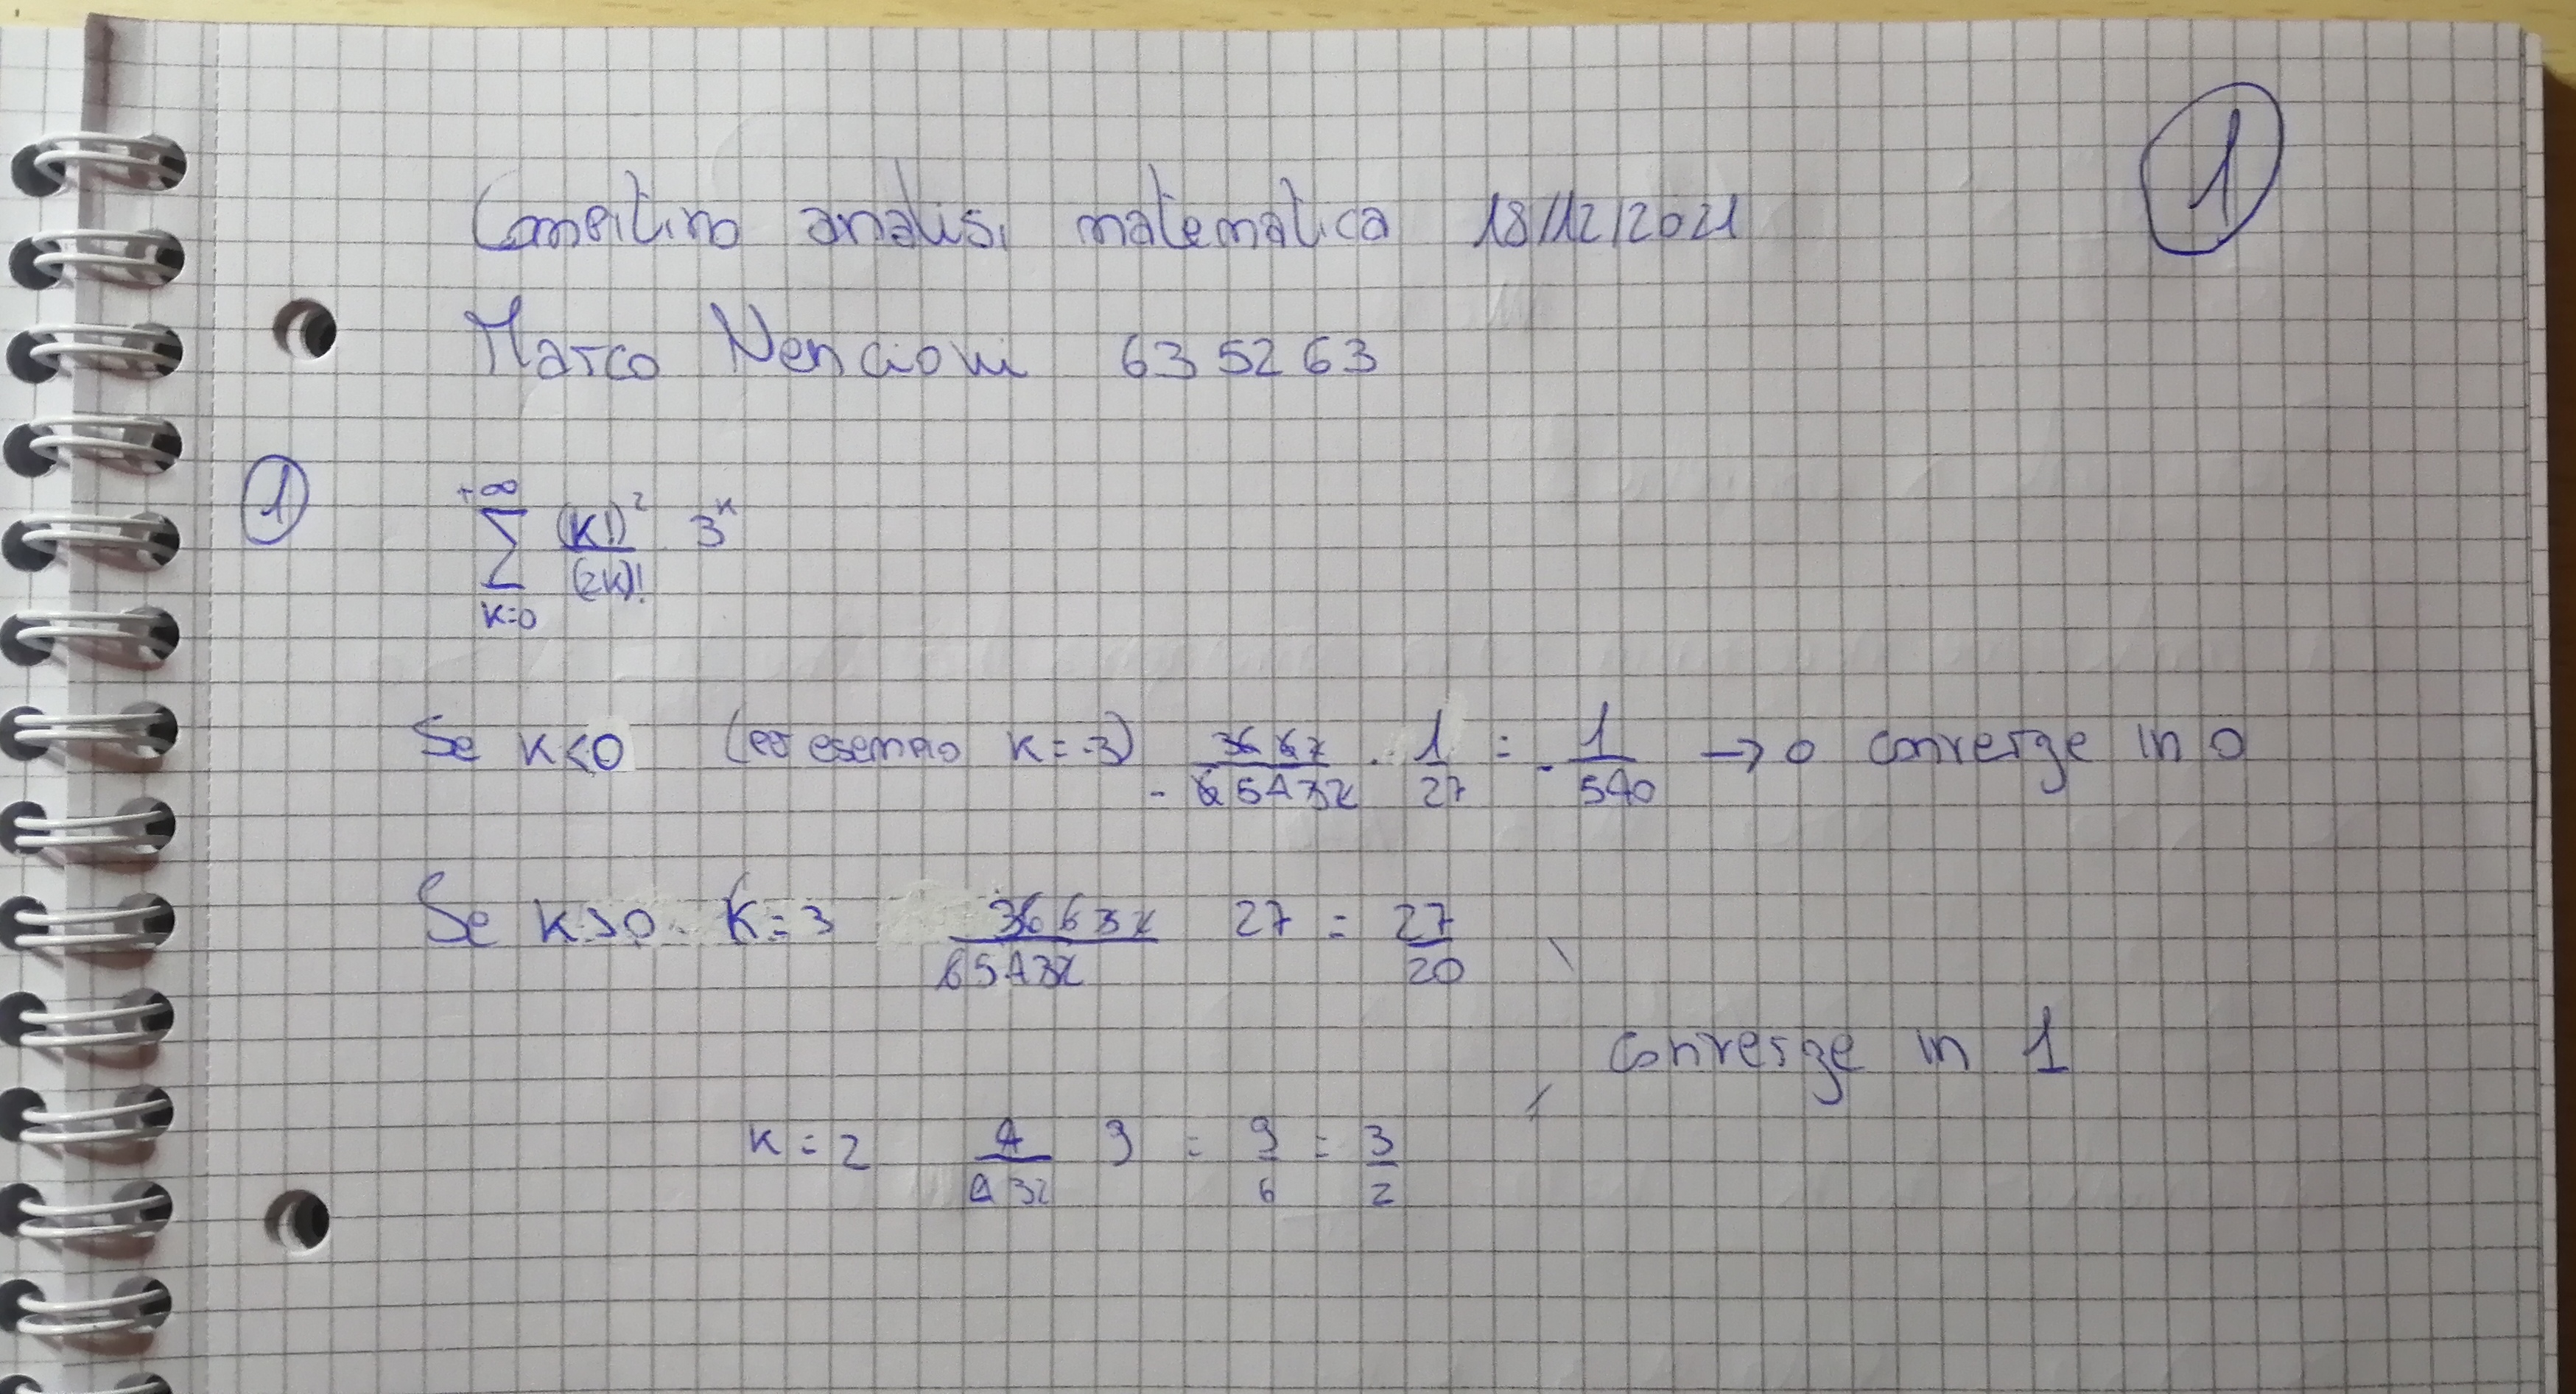 1
Compitino analisi matematica 18/12/2021
Marco Nencioni 635263
1
+∞
∑ (K!)² / (2K)! · 3ᴷ
K=0
Se K<0 (ad esempio K=-3) · 1/27 = -1/540 → 0 converge in 0
Se K>0 K=3 27 = 27/20
converge in 1
K=2 4/432 9 = 9/6 = 3/2